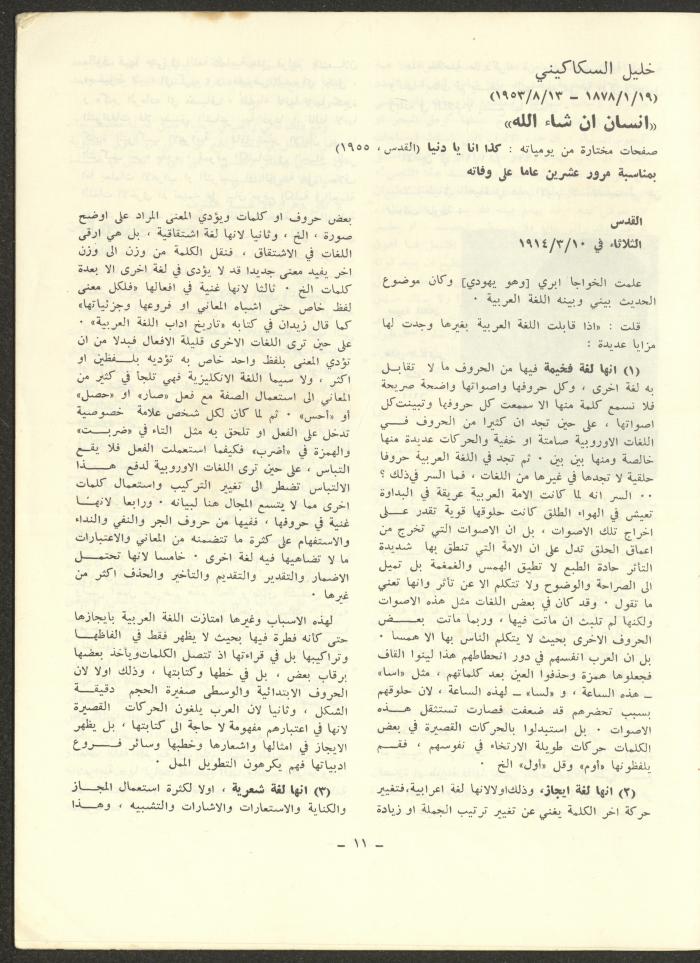 خليل السكاكيني
(١٨٧٨/١/١٩ – ١٩٥٣/٨/١٣)
«انسان ان شاء الله»
صفحات مختارة من يومياته : كذا انا يا دنيا (القدس ، ١٩٥٥)
بمناسبة مرور عشرين عاما على وفاته
القدس
الثلاثاء في ١٩١٤/٣/١٠
علمت الخواجا ابري [وهو يهودي] وكان موضوع
الحديث بيني وبينه اللغة العربية ٠
قلت : «اذا قابلت اللغة العربية بغيرها وجدت لها
مزايا عديدة :
(١) انها لغة فخيمة فيها من الحروف ما لا تقابل
به لغة اخرى ، وكل حروفها واصواتها واضحة صريحة
فلا نسمع كلمة منها الا سمعت كل حروفها وتبينت كل
اصواتها ، على حين تجد ان كثيرا من الحروف فــي
اللغات الاوروبية صامتة او خفية والحركات عديدة منها
خالصة ومنها بين بين ٠ ثم تجد في اللغة العربية حروفا
حلقية لا تجدها في غيرها من اللغات ، فما السر في ذلك ؟
٠٠ السر انه لما كانت الامة العربية عريقة في البداوة
تعيش في الهواء الطلق كانت حلوقها قوية تقدر علــى
اخراج تلك الاصوات ، بل ان الاصوات التي تخرج من
اعماق الحلق تدل على ان الامة التي تنطق بها شديدة
التأثر حادة الطبع لا تطيق الهمس والغمغمة بل تميل
الى الصراحة والوضوح ولا تتكلم الا عن تأثر وانها تعني
ما تقول ٠ وقد كان في بعض اللغات مثل هذه الاصوات
ولكنها لم تلبث ان ماتت فيها ، وربما ماتت بعــــض
الحروف الاخرى بحيث لا يتكلم الناس بها الا همسا ٠
بل ان العرب انفسهم في دور انحطاطهم هذا لينوا القاف
فجعلوها همزة وحذفوا العين بعد كلماتهم ، مثل «اسا»
ـ هذه الساعة ، و «لسا» ـ لهذه الساعة ، لان حلوقهم
بسبب تحضرهم قد ضعفت فصارت تستثقل هـــذه
الاصوات ٠ بل استبدلوا بالحركات القصيرة في بعض
الكلمات حركات طويلة الارتخاء في نفوسهم ، فقــم
يلفظونها «أوم» وقل «أول» الخ ٠
(٢) انها لغة ايجاز، وذلك اولا لانها لغة اعرابية، فتغيير
حركة اخر الكلمة يغني عن تغيير ترتيب الجملة او زيادة
بعض حروف او كلمات ويؤدي المعنى المراد على اوضح
صورة ، الخ ، وثانيا لانها لغة اشتقاقية ، بل هي ارقى
اللغات في الاشتقاق ، فنقل الكلمة من وزن الى وزن
اخر يفيد معنى جديدا قد لا يؤدى في لغة اخرى الا بعدة
كلمات الخ ٠ ثالثا لانها غنية في افعالها «فلكل معنى
لفظ خاص حتى اشباه المعاني او فروعها وجزئياتها»
كما قال زيدان في كتابه «تاريخ اداب اللغة العربية» ٠
على حين ترى اللغات الاخرى قليلة الافعال فبدلا من ان
تؤدي المعنى بلفظ واحد خاص به تؤديه بلـــفظين او
اكثر ، ولا سيما اللغة الانكليزية فهي تلجأ في كثير من
المعاني الى استعمال الصفة مع فعل «صار» او «حصل»
أو «أحس» ٠ ثم لما كان لكل شخص علامة خصوصية
تدخل على الفعل او تلحق به مثل التاء في «ضربــت»
والهمزة في «أضرب» فكيفما استعملت الفعل فلا يقــع
التباس ، على حين ترى اللغات الاوروبية لدفع هـــذا
الالتباس تضطر الى تغيير التركيب واستعمال كلمات
اخرى مما لا يتسع المجال هنا لبيانه ٠ ورابعا لانهــا
غنية في حروفها ، ففيها من حروف الجر والنفي والنداء
والاستفهام على كثرة ما تتضمنه من المعاني والاعتبارات
ما لا تضاهيها فيه لغة اخرى ٠ خامسا لانها تحتمــل
الاضمار والتقدير والتقديم والتأخير والحذف اكثر من
غيرها ٠
لهذه الاسباب وغيرها امتازت اللغة العربية بايجازها
حتى كانه فطرة فيها بحيث لا يظهر فقط في الفاظهــا
وتراكيبها بل في قراءتها اذ تتصل الكلمات ويأخذ بعضها
برقاب بعض ، بل في خطها وكتابتها ، وذلك اولا لان
الحروف الابتدائية والوسطى صغيرة الحجم دقيقــة
الشكل ، وثانيا لان العرب يلغون الحركات القصيرة
لانها في اعتبارهم مفهومة لا حاجة الى كتابتها ، بل يظهر
الايجاز في امثالها واشعارها وخطبها وسائر فـــروع
ادبياتها فهم يكرهون التطويل الممل ٠
(٣) انها لغة شعرية ، اولا لكثرة استعمال المجــاز
والكناية والاستعارات والاشارات والتشبيه ، وهــذا
– ١١ –